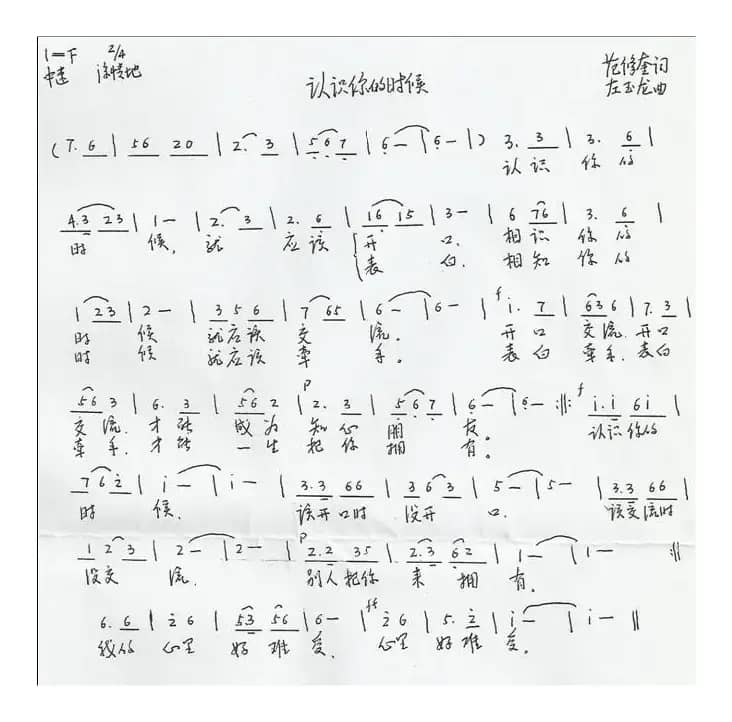 1=F 2/4
中速 深情地
认识你的时候
范修奎词
左玉龙曲
(7. 6 | 56 20 | 2. 3 | 5 6 7 | 6 – | 6 – |) 3. 3 | 3. 6 |
认识 你的
4.3 23 | 1 – | 2. 3 | 2. 6 | 16 15 | 3 – | 6 76 | 3. 6 |
时 候, 就 应该 开 口. 相识 你的
表 白. 相知 你的
1 23 | 2 – | 3 5 6 | 7 65 | 6 – | 6 – | f i. 7 | 63 6 | 7. 3 |
时 候 就应该 交 流. 开口 交流.开口
时 候 就应该 牵 手. 表白 牵手.表白
56 3 | 6. 3 | 56 2 | p 2. 3 | 5 6 7 | 6 – | 6 – :||: f i.i 6i |
交流. 才能 成为 知心 朋 友. 认识你的
牵手. 才能 一生 把你 拥 有.
7 6 2 | i – | i – | 3.3 66 | 3 6 3 | 5 – | 5 – | 3.3 66 |
时 候. 该开口时 没开 口. 该交流时
1 2 3 | 2 – | 2 – | p 2.2 35 | 2.3 62 | 1 – | 1 – :||
没交 流. 别人把你 来 拥 有.
6. 6 | 2 6 | 53 56 | 6 – | ff 2 6 | 5. 2 | i – | i – ||
我的 心里 好 难 受. 心里 好难 受.